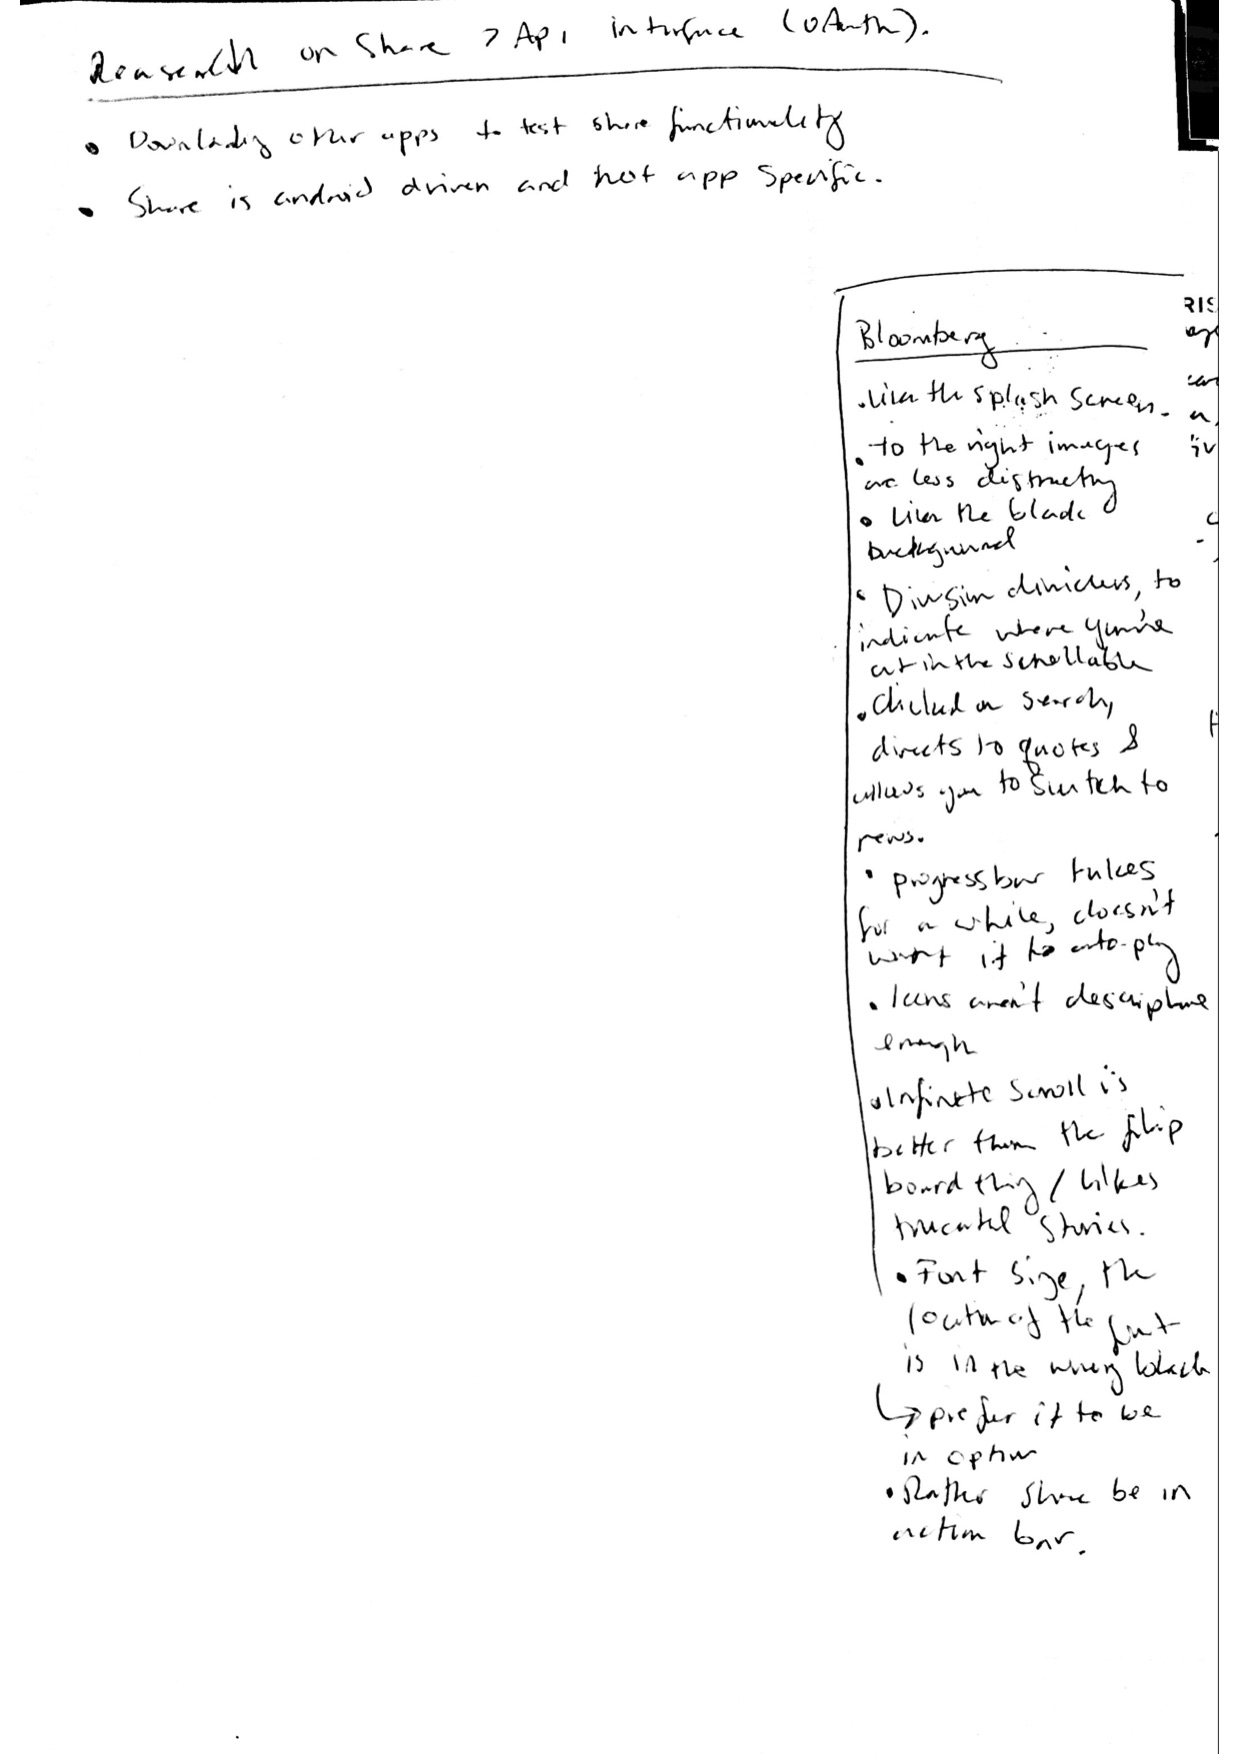 Research on Share > Api interface (OAuth).
• Downloading other apps to test share functionality
• Share is android driven and not app specific.
Bloomberg
• Likes the splash screen.
• to the right images
are less distracting
• Likes the black
background
• Division dividers, to
indicate where you're
at in the scrollable
• Clicked on search,
directs to quotes &
allows you to switch to
news.
• progress bar takes
for a while, doesn't
want it to auto-play
• Icons aren't descriptive
enough
• Infinite scroll is
better than the flip
board thing / likes
truncated stories.
• Font size, the
location of the font
is in the wrong
↳ prefer it to be
in option
• Rather share be in
action bar.